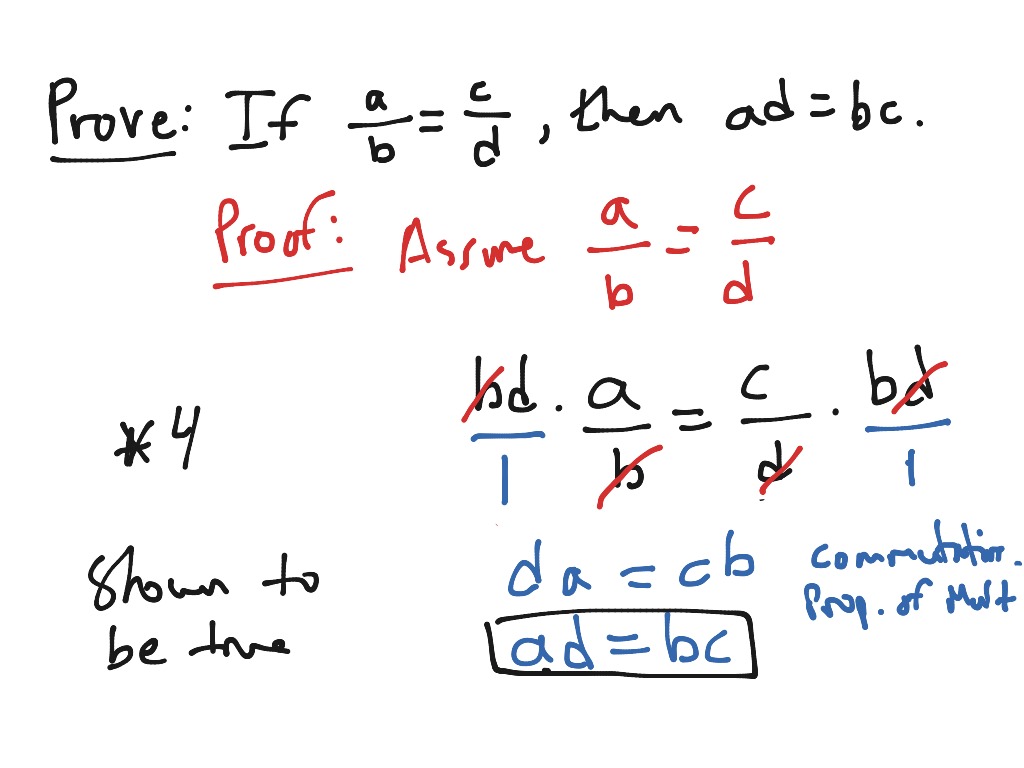 Prove: If a/b = c/d, then ad = bc.
Proof: Assume a/b = c/d
*4
bd/1 · a/b = c/d · bd/1
Shown to
be true
da = cb
ad = bc
commutation.
Prop. of Mult